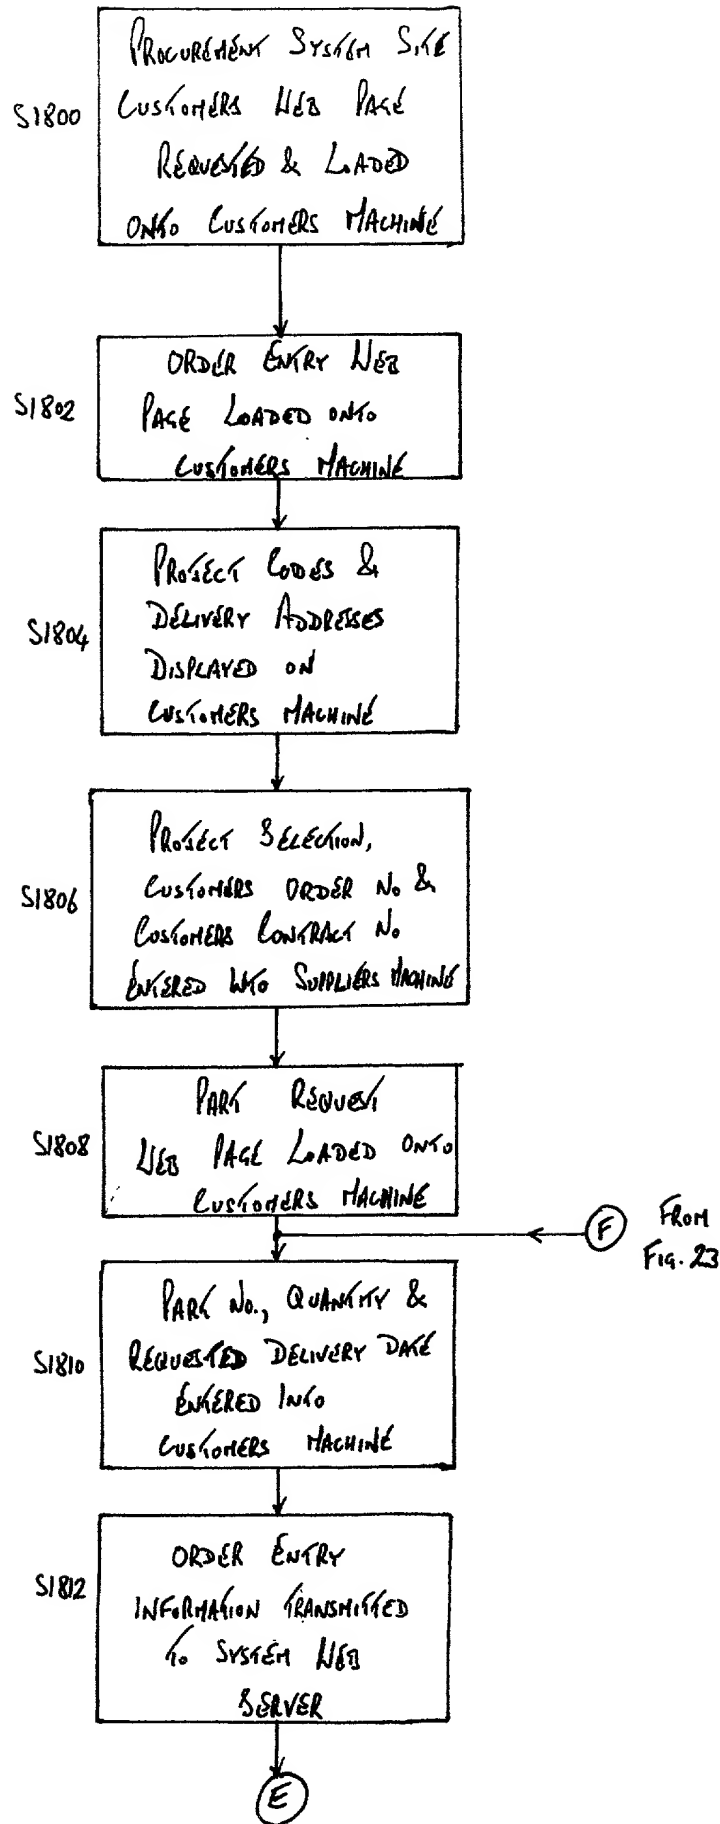 PROCUREMENT SYSTEM SITE
S1800
CUSTOMERS WEB PAGE
REQUESTED & LOADED
ONTO CUSTOMERS MACHINE
ORDER ENTRY WEB
S1802
PAGE LOADED ONTO
CUSTOMERS MACHINE
PROJECT CODES &
DELIVERY ADDRESSES
S1804
DISPLAYED ON
CUSTOMERS MACHINE
PROJECT SELECTION,
S1806
CUSTOMERS ORDER NO &
CUSTOMERS CONTRACT NO
ENTERED INTO SUPPLIERS MACHINE
PART REQUEST
S1808
WEB PAGE LOADED ONTO
CUSTOMERS MACHINE
F
FROM
FIG. 23
PART NO., QUANTITY &
S1810
REQUESTED DELIVERY DATE
ENTERED INTO
CUSTOMERS MACHINE
ORDER ENTRY
S1812
INFORMATION TRANSMITTED
TO SYSTEM WEB
SERVER
E